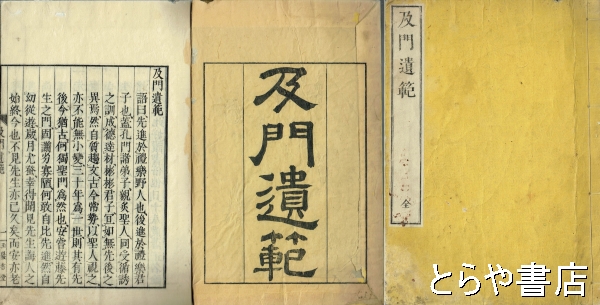 及門遺範
語曰先進於禮樂野人也後進於禮樂君
子也蓋孔門諸弟子親炙聖人同受循誘
之訓成德達材彬彬君子宜如無先後之
異焉然自質趨文古今常勢以聖人視之
亦不能無小變三十年爲一世則其有先
後今猶古何獨聖門爲然也安嘗遊藤先
生之門固謭劣寡陋何敢自比先進然自
幼從遊歲月尤最幸得聞見先生誨人之
始終今也不見先生亦已久矣而安亦老
及門遺範
及門遺範
及門遺範
全
とらや書店